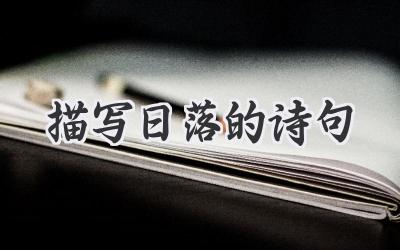 描写日落的诗句